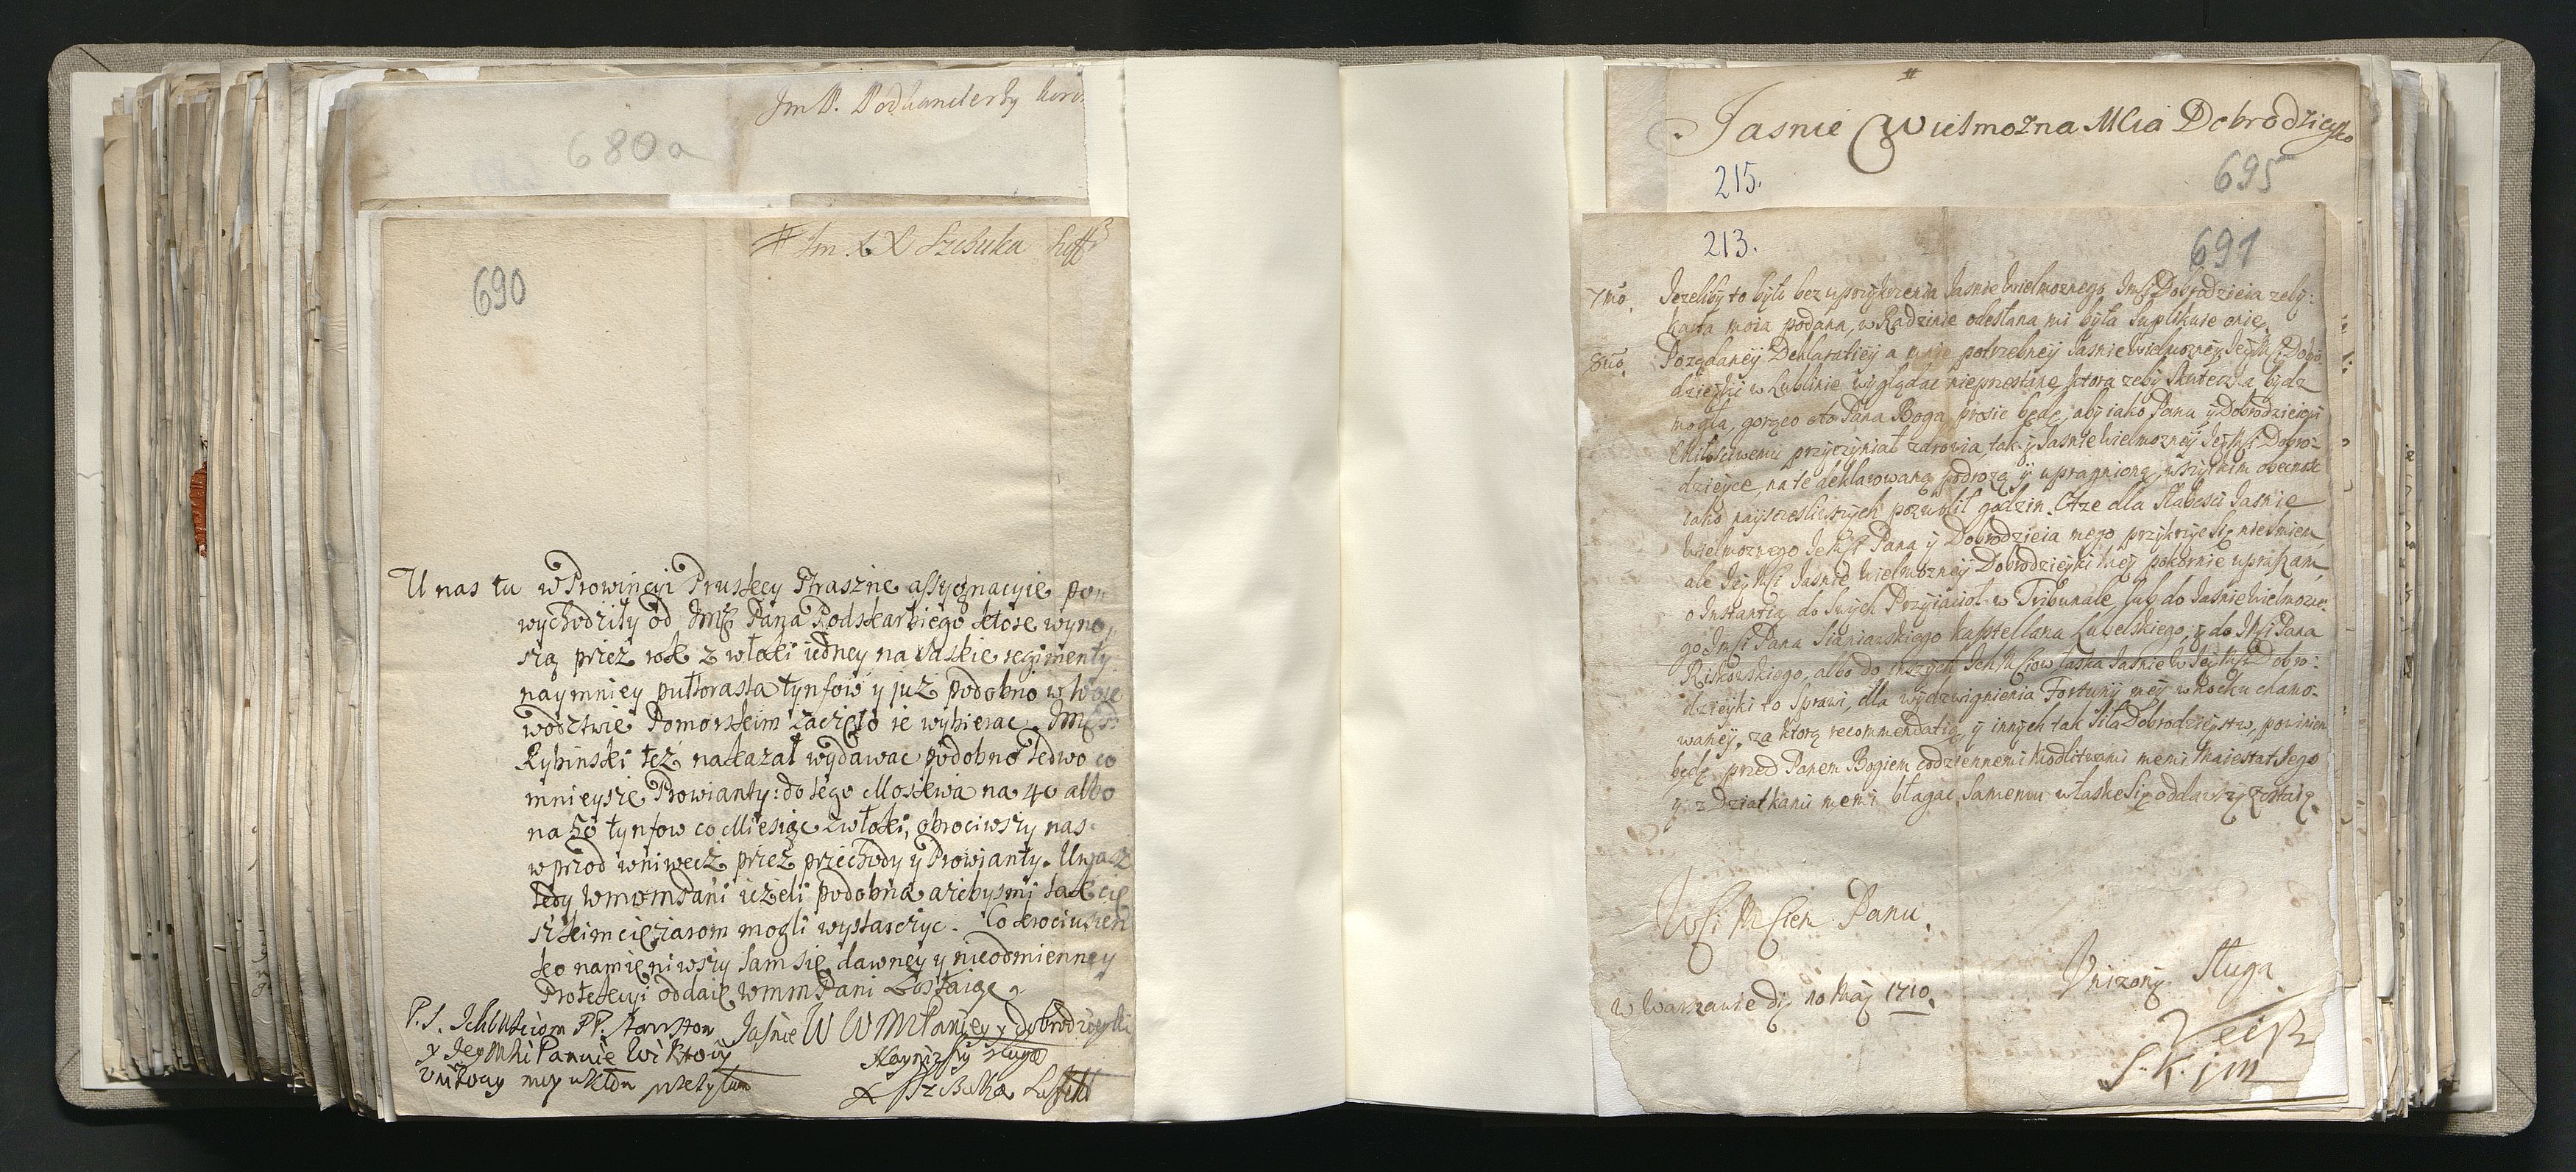 680a
690
U nas tu w Prowincyi Pruskiey straszne assygnacyie
wychodziły od Jmsci Pana Podskarbiego ktore wyno
szą przez rok z włoki iedney na Saskie regimenty
naymniey pułtorasta tynfow y już podobno w Woie
wodztwie Pomorskim zaczęto ie wybierac.
Rybinski też nakazał wydawac podobno ledwo co
mnieysze Prowianty: do tego Moskwa na 40 albo
na 50 tynfow co Miesiąc z włoki, obrociwszy nas
wprzod wniwecz przez przechody y Prowianty. Uważ
tedy wmwmPani ieżeli podobna ażebysmy tak cię
szkim ciężarom mogli wystarczyc. Co krociusień
ko namieniwszy sam się dawney y nieodmienney
Protekcyi oddaię wmmPani Zostaiąc
P.S.
Jasnie W WMPaniey y dobrodzieyki
y Jeymsci Pannie Wiktoryi
Nayniższy sługa
Jasnie Wielmożna Mcia Dobrodzieyko
215.
695
213.
691
7mo. Jezeliby to było bez uprzykrzenia Jasnie Wielmoznego Jmsci Dobrodzieia zeby
karta moia podana, w Radzinie odesłana mi była suplikuie onię.
8vo. Poządaney Deklaratiey a mnie potrzebney Jasnie Wielmozney Jeymsci Dobro
dzieyki w Lublinie wyglądac nieprzestanę, ktora zeby skuteczna bydz
mogła, gorąco do Pana Boga prosic będę, aby iako Panu y Dobrodzieiowi
Miłosciwemu przyczyniał zdrowia, tak y Jasnie Wielmozney Jeymsci Dobro-
dzieyce, na te deklarowaną podrozą y upragnioną wszytkim obecnosc
iako nayszczesliwszych pozwolił godzin. A ze dla słabosci Jasnie
Wielmoznego Jemsci Pana y Dobrodzieia mego przykrzyc się niesmiem,
ale Jeymsci Jasnie Wielmozney Dobrodzieyki mey pokornie upraszam,
o Instantią do swych Przyiacioł w Tribunale, lub do Jasnie Wielmozne
go Jmsci Pana Kasztellana Lubelskiego, y do Jmsci Pana
albo do inszych łaska Jasnie W Jeymsci Dobro:
dzieyki to sprawi, dla wydzwignienia Fortuny mey w Rocku
waney, za ktorą recommendatią, y innych tak siła Dobrodzieystw, powinien
będę przed Panem Bogiem codziennemi modlitwami memi Maiestat Jego
y z Dziatkami memi błagac, samemu w łaskę się oddawszy zostaię.
Wsci Mscien Panu,
Unizony Sługa
w Warszawie dy 10 Maj 1710.